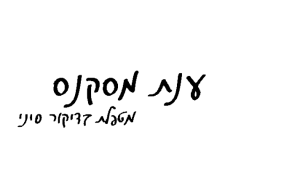 ענת מסקנס
מטפלת בדיקור סיני